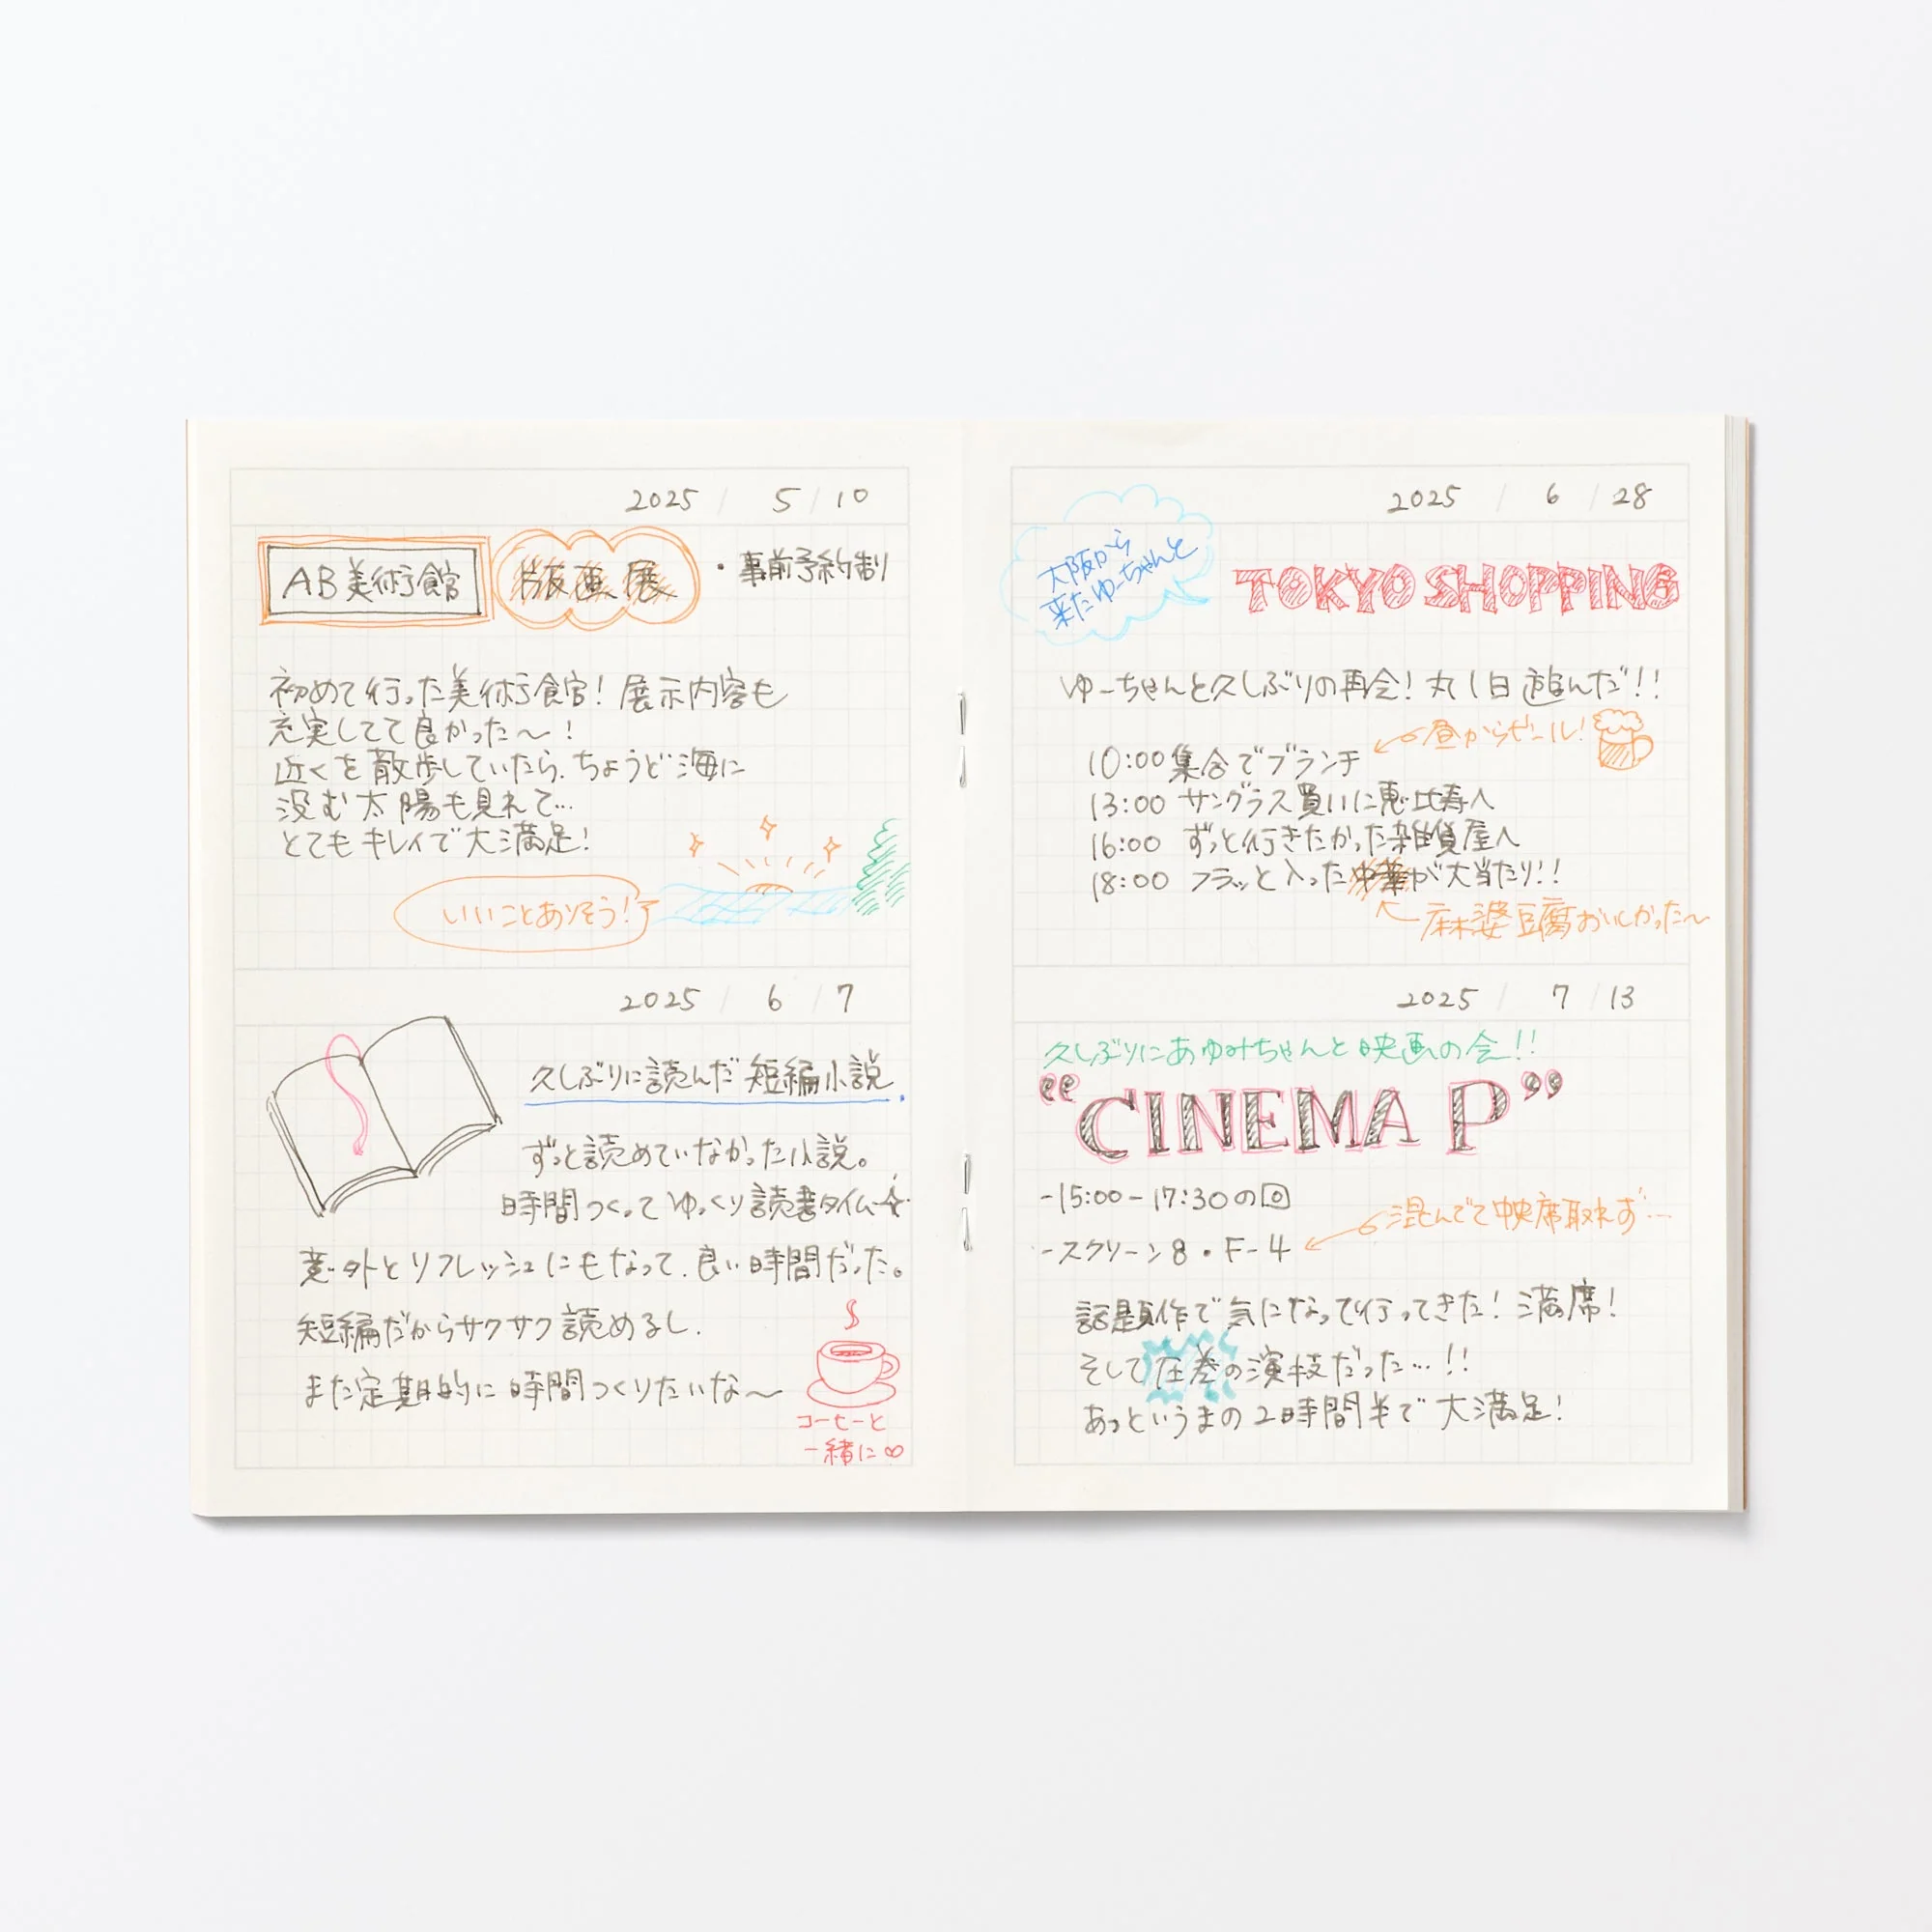 2025 / 5 / 10
AB美術館 版画展 ・事前予約制
初めて行った美術館！展示内容も
充実してて良かった〜！
近くを散歩していたら、ちょうど海に
沈む太陽も見れて…
とてもキレイで大満足！
いいことありそう！
2025 / 6 / 7
久しぶりに読んだ短編小説.
ずっと読めていなかった小説。
時間つくってゆっくり読書タイム☆
意外とリフレッシュにもなって、良い時間だった。
短編だからサクサク読めるし、
また定期的に時間つくりたいな〜
コーヒーと
一緒に♡
2025 / 6 / 28
大阪から
来たゆーちゃんと
TOKYO SHOPPING
ゆーちゃんと久しぶりの再会！丸1日遊んだ！！
昼からビール！
10:00 集合でブランチ
13:00 サングラス買いに恵比寿へ
16:00 ずっと行きたかった雑貨屋へ
18:00 フラッと入った中華が大当たり！！
麻婆豆腐おいしかった〜
2025 / 7 / 13
久しぶりにあゆみちゃんと映画の会！！
“CINEMA P”
-15:00-17:30の回
混んでて中央席取れず…
-スクリーン8・F-4
話題作で気になって行ってきた！満席！
そして圧巻の演技だった…！！
あっというまの2時間半で大満足！